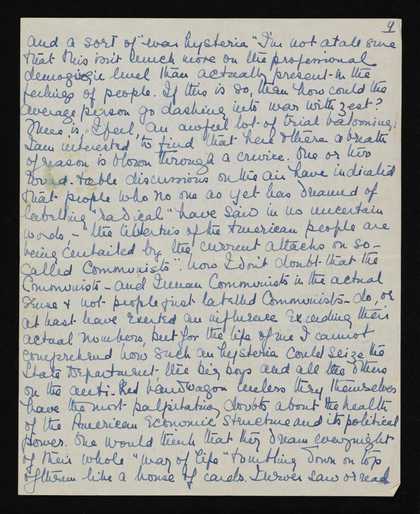 9
and a sort of "war hysteria" I'm not at all sure
that this isn't much more on the professional
demagogic level than actually present in the
feelings of people. If this is so, then how could the
average person go dashing into war with zest?
There is, I feel, an awful lot of trial ballooning.
I am interested to find that here & there a breath
of reason is blown through a crevice. One or two
round-table discussions on the air have indicated
that people who no one as yet has dreamed of
labelling "radical" have said in no uncertain
words, - the liberties of the American people are
being curtailed by the current attacks on so-
called Communists". Now I don't doubt that the
Communists - and I mean Communists in the actual
sense & not people just labelled Communists - do, or
at least have exerted an influence exceeding their
actual numbers, but for the life of me I cannot
comprehend how such an hysteria could seize the
State Department - the big boys and all the others
on the anti-Red bandwagon unless they themselves
have the most palpitating doubts about the health
of the American Economic Structure and its political
power. One would think that they dream overnight
of their whole "way of life" tumbling down on top
of them like a house of cards. I never saw or read